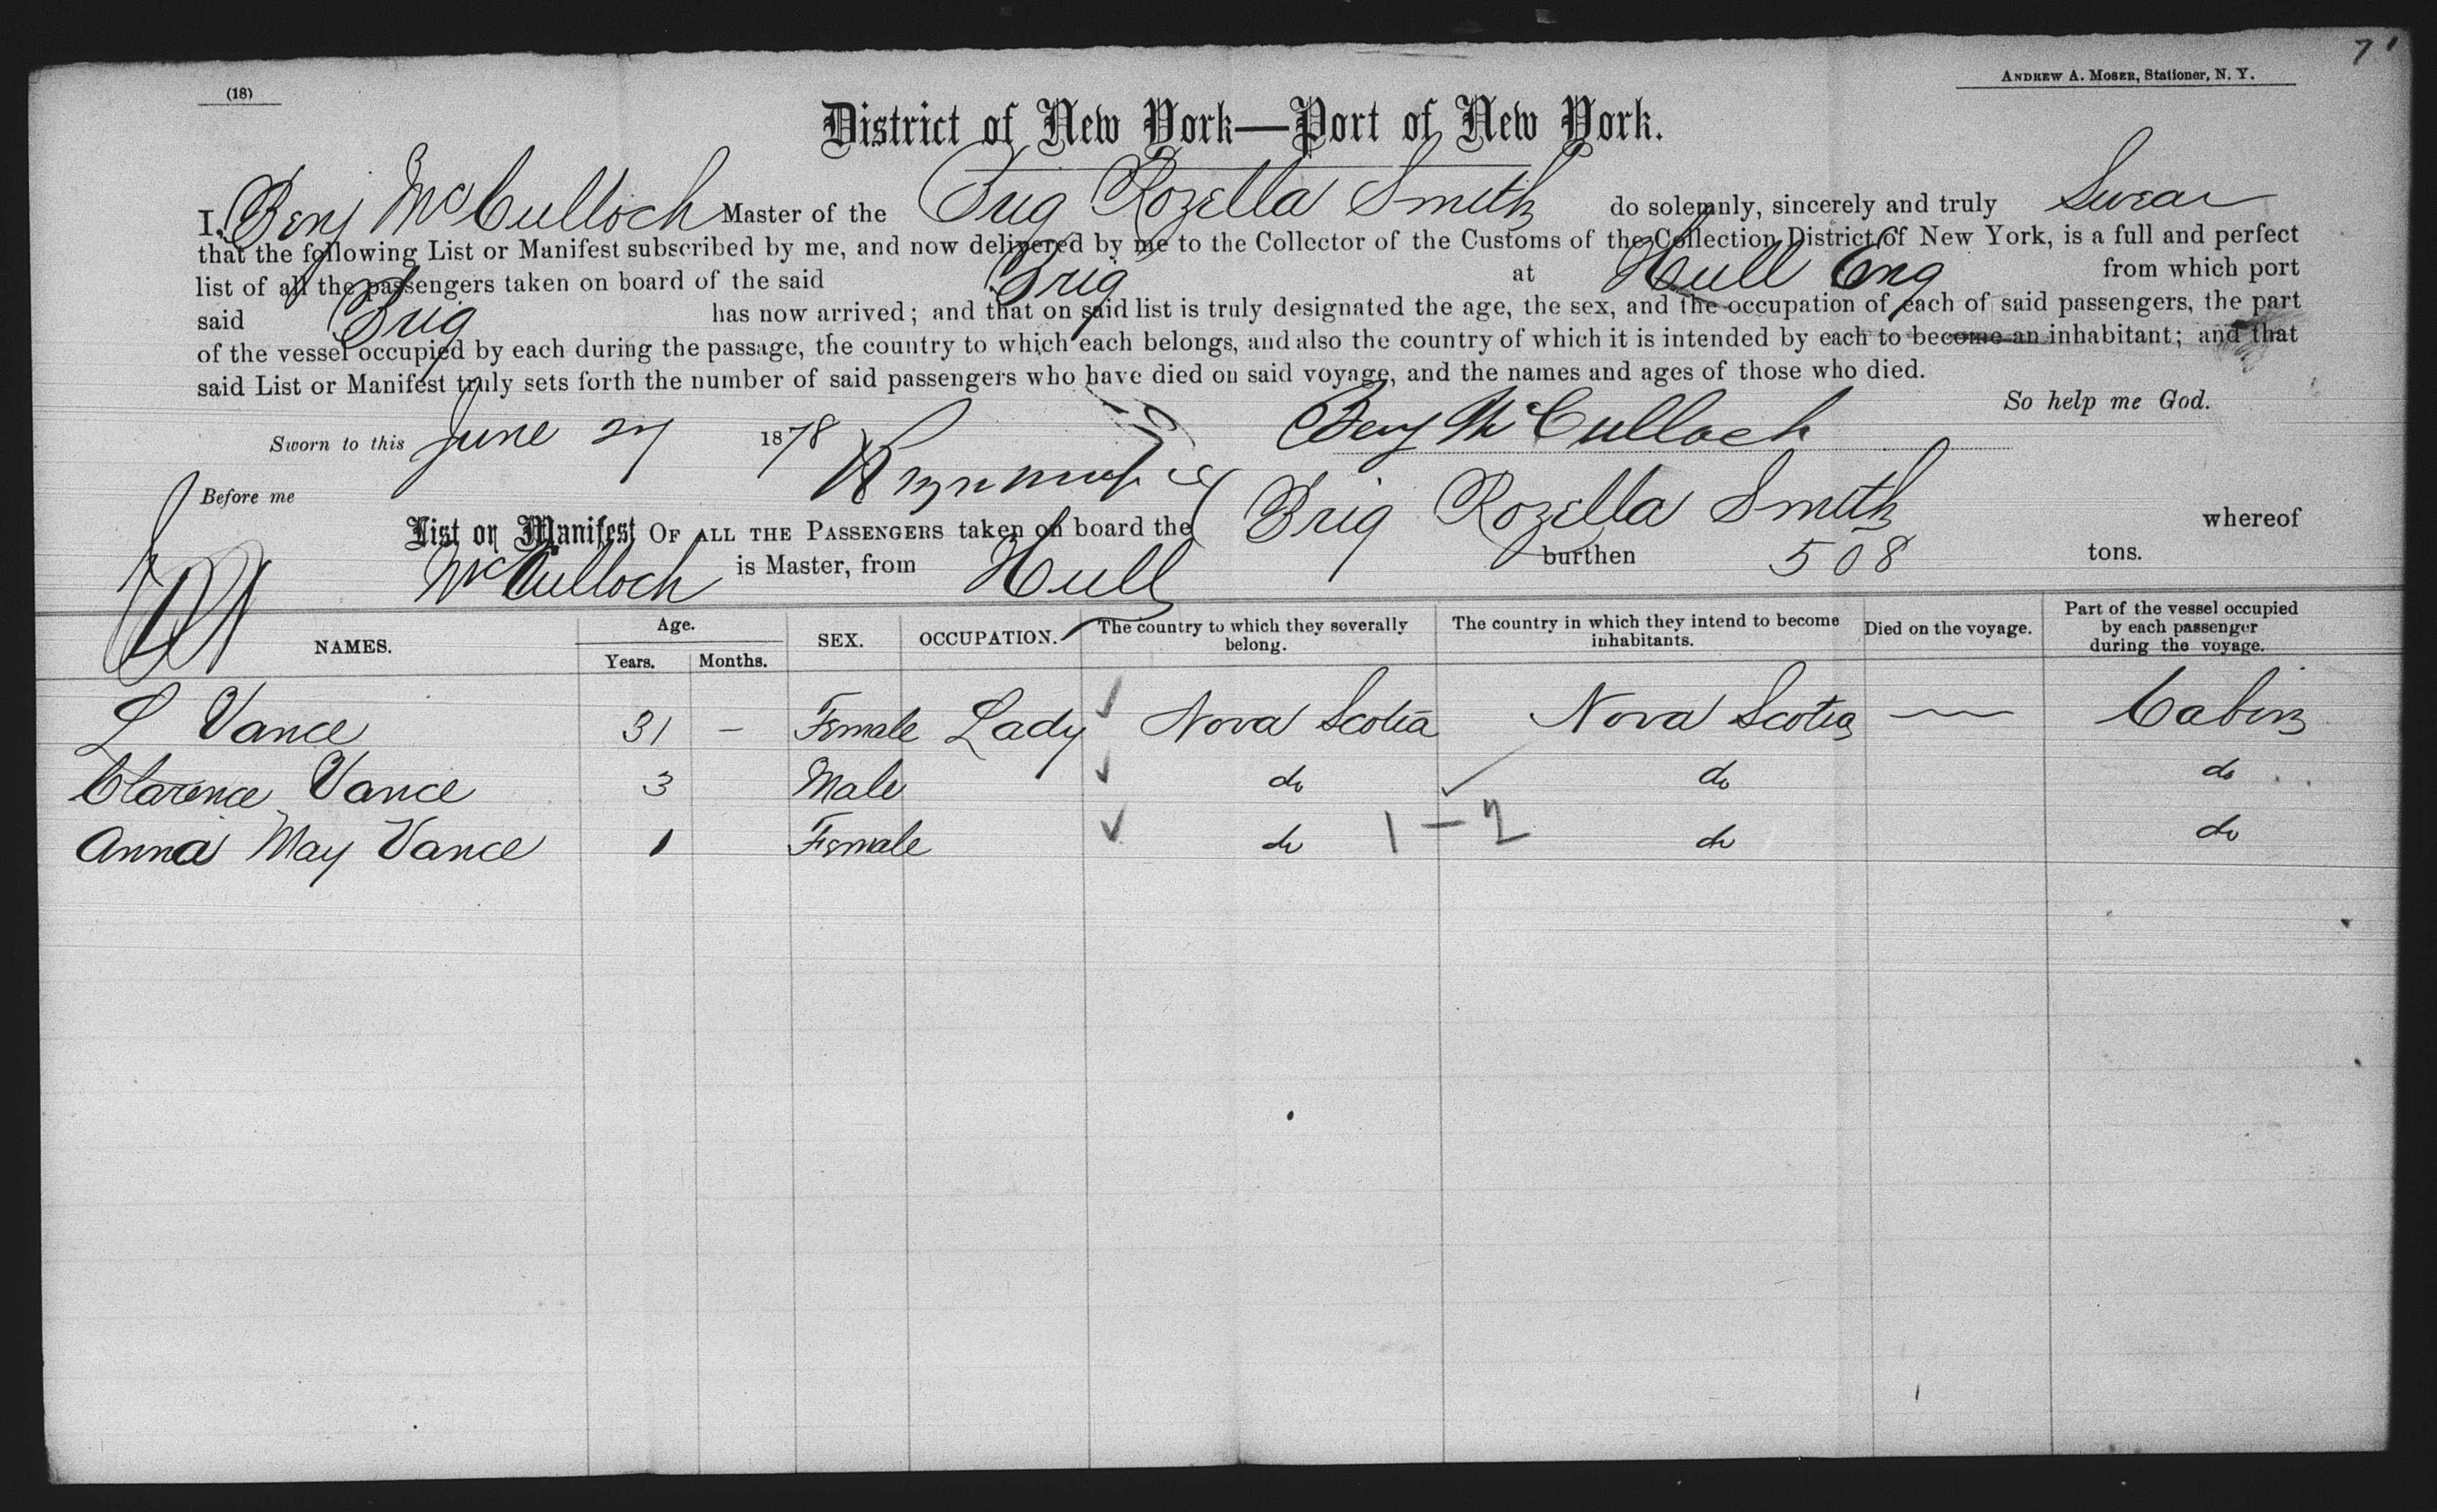 7
(18)
ANDREW A. MOSER, Stationer, N. Y.
District of New York—Port of New York.
I, Benj McCulloch Master of the Brig Rozella Smith do solemnly, sincerely and truly Swear
that the following List or Manifest subscribed by me, and now delivered by me to the Collector of the Customs of the Collection District of New York, is a full and perfect
list of all the passengers taken on board of the said Brig at Hull Eng from which port
said Brig has now arrived; and that on said list is truly designated the age, the sex, and the occupation of each of said passengers, the part
of the vessel occupied by each during the passage, the country to which each belongs, and also the country of which it is intended by each to become an inhabitant; and that
said List or Manifest truly sets forth the number of said passengers who have died on said voyage, and the names and ages of those who died.
So help me God.
Sworn to this June 27 1878 Benj McCulloch
Before me
List or Manifest OF ALL THE PASSENGERS taken on board the Brig Rozella Smith whereof
McCulloch is Master, from Hull burthen 508 tons.
NAMES. Age. Years. Months. SEX. OCCUPATION. The country to which they severally belong. The country in which they intend to become inhabitants. Died on the voyage. Part of the vessel occupied by each passenger during the voyage.
L Vance 31 – Female Lady ✓ Nova Scotia Nova Scotia — Cabin
Clarence Vance 3 Male ✓ do ✓ do do
Anna May Vance 1 Female ✓ do 1–2 do do